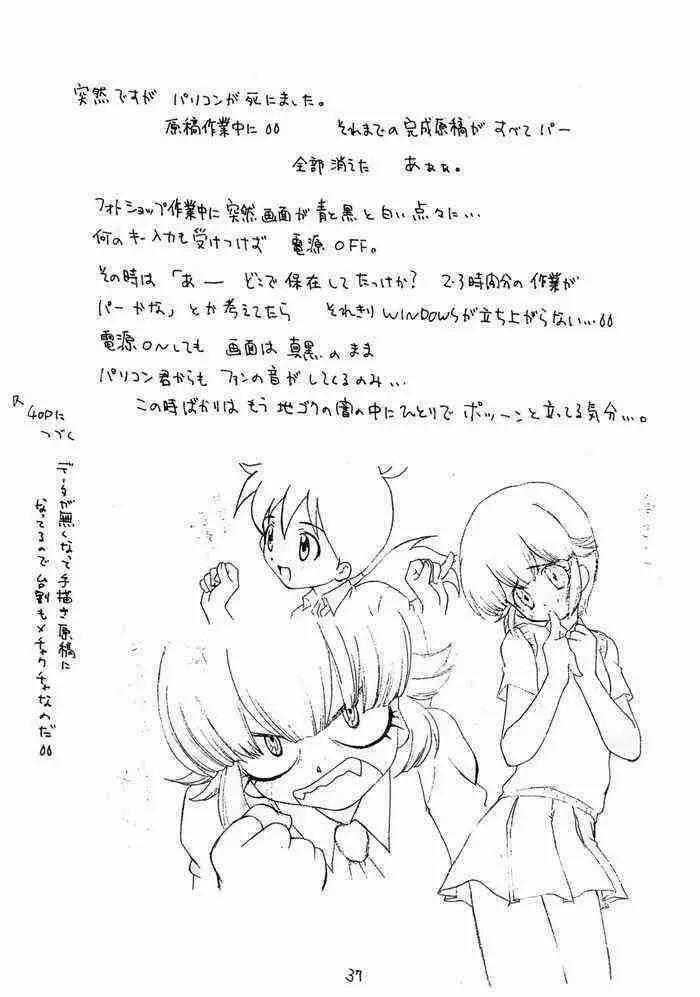 突然ですが パソコンが死にました。
原稿作業中に
それまでの完成原稿が すべてパー
全部消えた あぁぁ。
フォトショップ作業中に突然画面が青と黒と白い点々に…
何のキー入力も受けつけば 電源OFF。
その時は「あー どこで保在してたっけか? 2・3時間分の作業が
パーかな」とか考えてたら それきりWINDOWSが立ち上がらない…
電源ONしても 画面は真黒のまま
パソコン君からも ファンの音がしてくるのみ…
この時ばかりは もう 地ゴクの闇の中にひとりで ポツーンと立ってる気分…。
40Pに
つづく
データが無くなって手描き原稿に
なってるので台割もメチャクチャなのだ
37